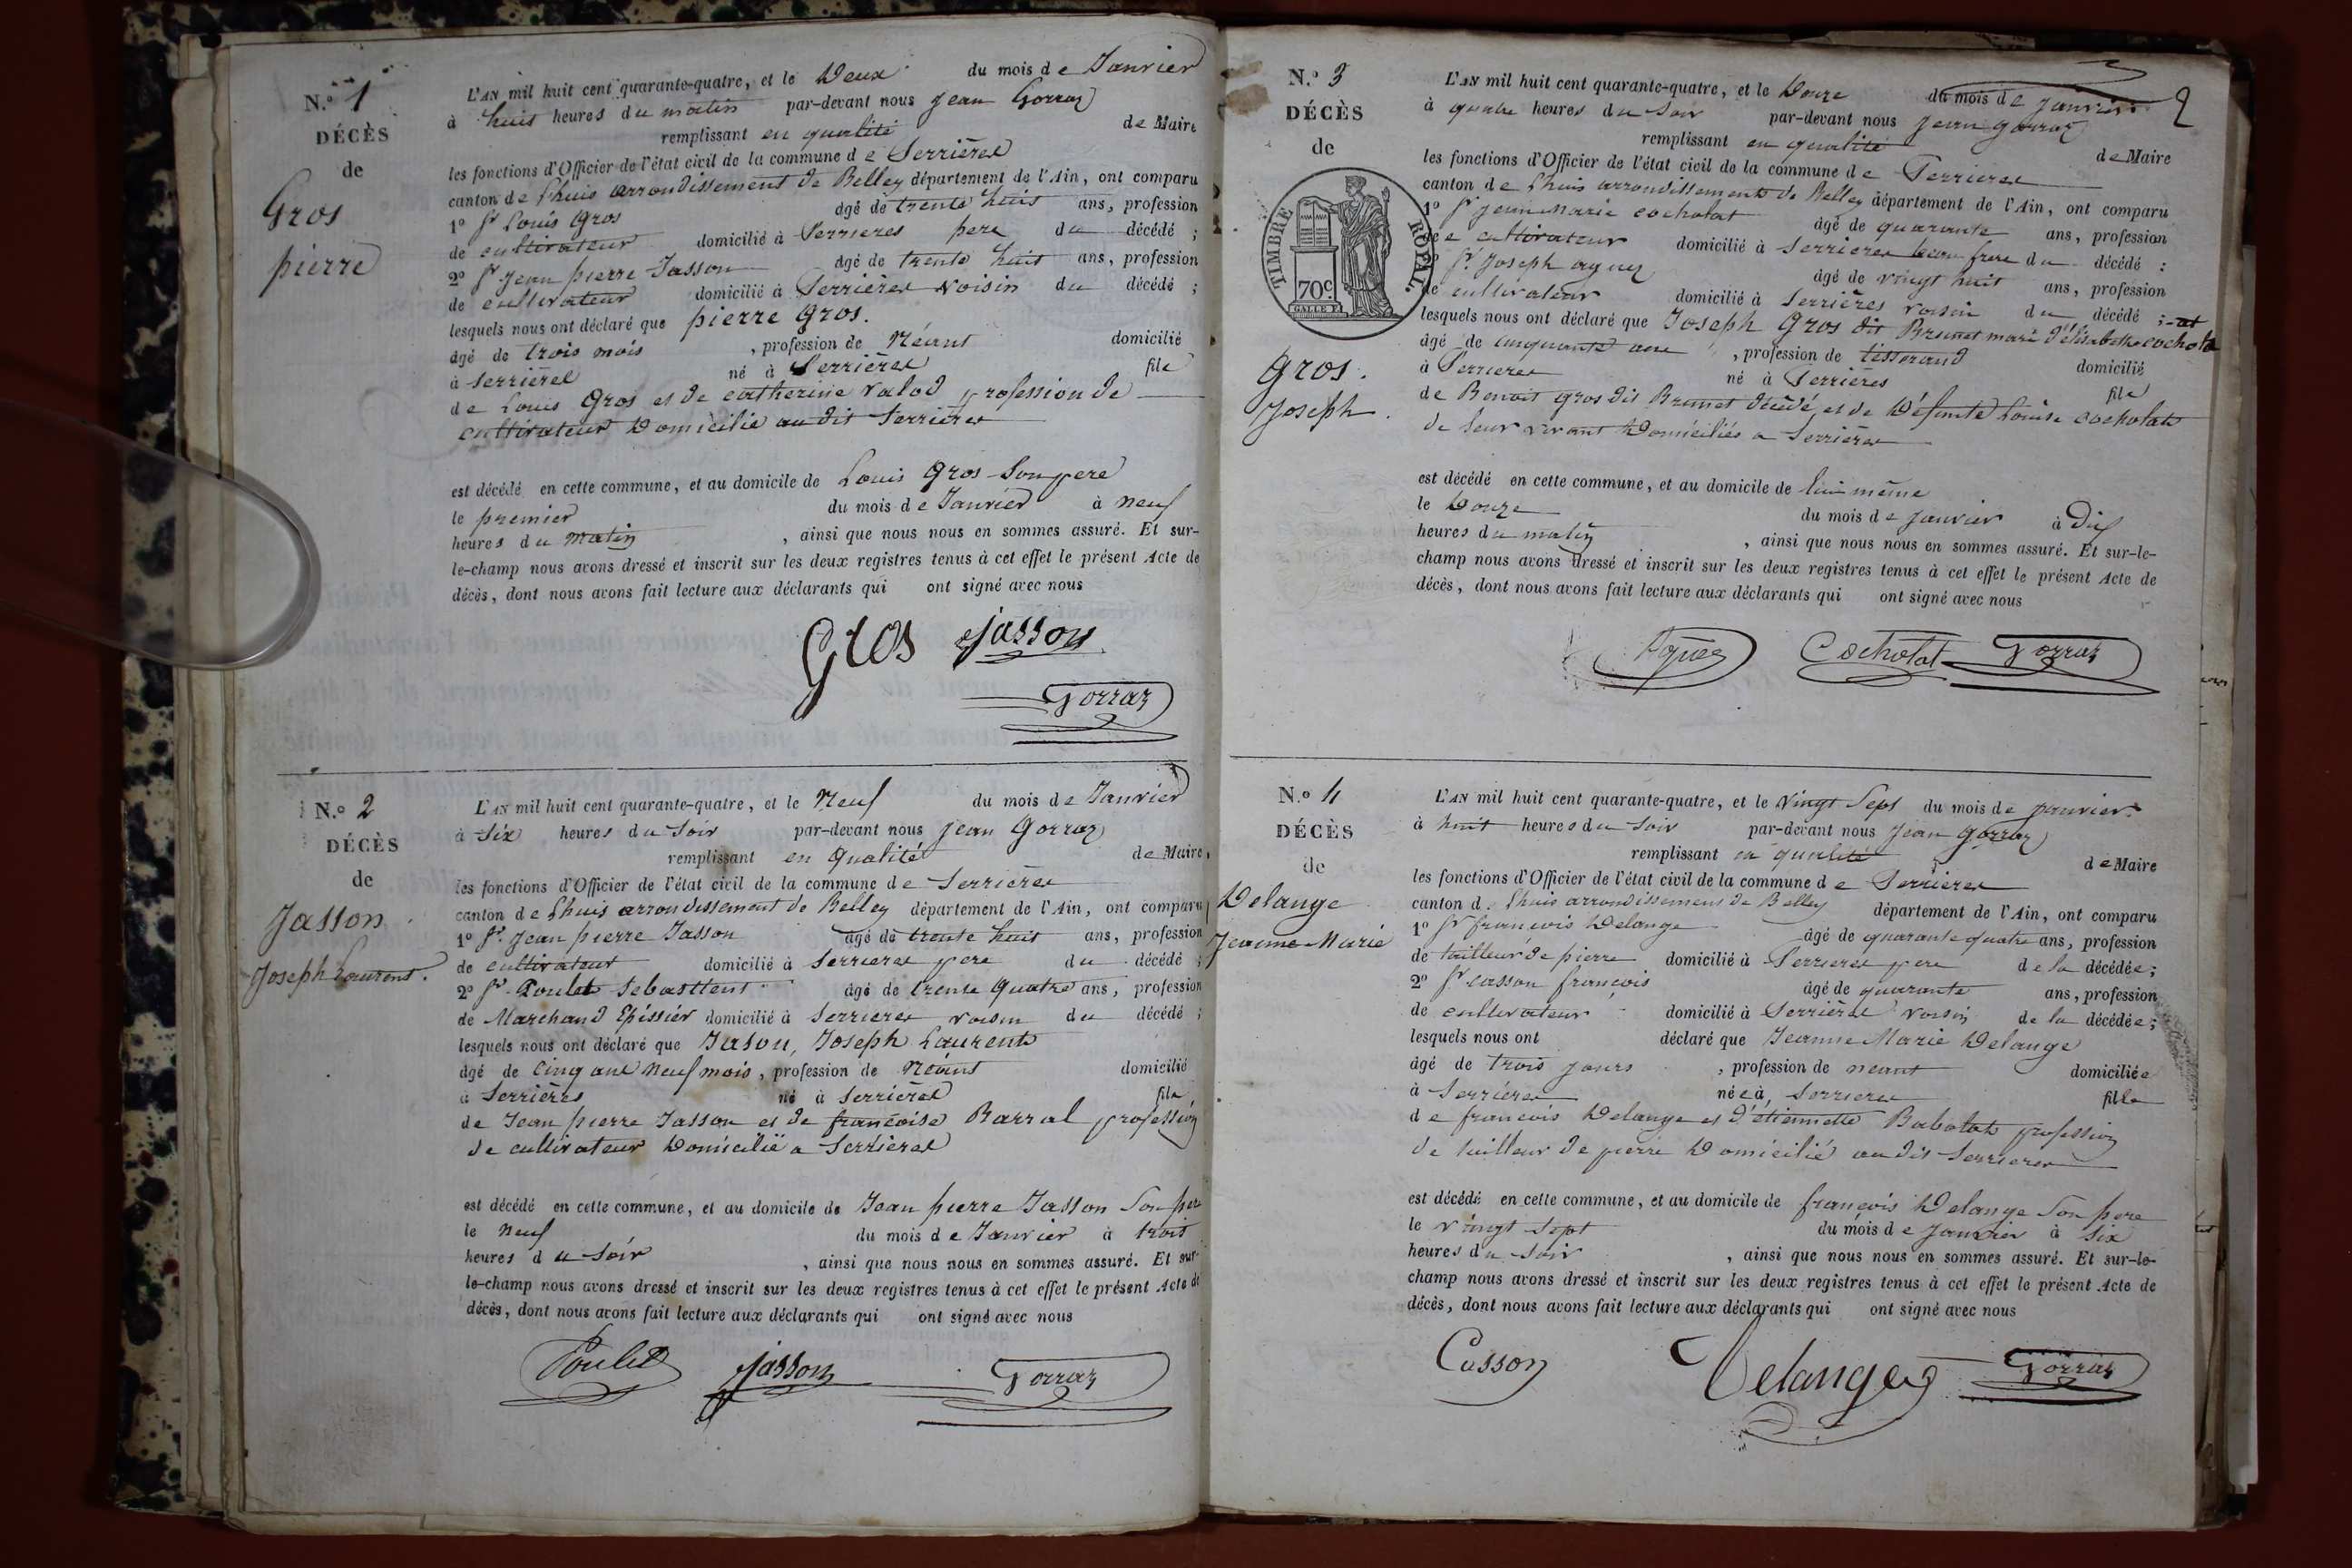 N.º 1
DÉCÈS
de
Gros
pierre
L'AN mil huit cent quarante-quatre, et le Deux du mois de Janvier
à huit heures du matin par-devant nous Jean Gorraz
remplissant en qualité de Maire
les fonctions d'Officier de l'état civil de la commune de Serrières
canton de Lhuis arrondissement de Belley département de l'Ain, ont comparu
1º Sr Louis Gros âgé de trente huit ans, profession
de cultivateur domicilié à Serrieres pere du décédé ;
2º Sr Jean pierre Jasson âgé de trente huit ans, profession
de cultivateur domicilié à Serrières voisin du décédé ;
lesquels nous ont déclaré que pierre Gros.
âgé de trois mois , profession de Néant domicilié
à Serrières né à Serrières fils
de Louis Gros et de catherine Valod profession de
cultivateur Domicilié au dit Serrières
est décédé en cette commune, et au domicile de Louis Gros Son pere
le premier du mois de Janvier à neuf
heures du matin , ainsi que nous nous en sommes assuré. Et sur-
le-champ nous avons dressé et inscrit sur les deux registres tenus à cet effet le présent Acte de
décès, dont nous avons fait lecture aux déclarants qui ont signé avec nous
Gros Jasson
Gorraz
N.º 2
DÉCÈS
de
Jasson
Joseph Laurent.
L'AN mil huit cent quarante-quatre, et le Neuf du mois de Janvier
à Six heures du Soir par-devant nous Jean Gorraz
remplissant en Qualité de Maire,
les fonctions d'Officier de l'état civil de la commune de Serrieres
canton de Lhuis arrondissement de Belley département de l'Ain, ont comparu
1º Sr. Jean pierre Jasson âgé de trente huit ans, profession
de cultivateur domicilié à Serrieres pere du décédé ;
2º Sr Poulet Sebasttent âgé de trente Quatre ans, profession
de Marchand Epissier domicilié à Serrieres voisin du décédé ;
lesquels nous ont déclaré que Jason, Joseph Laurent
âgé de Cinq ans Neuf mois, profession de Néant domicilié
à Serrières né à Serrières fils
de Jean pierre Jasson et de françoise Barral profession
de cultivateur Domicilié a Serrieres
est décédé en cette commune, et au domicile de Jean pierre Jasson Son pere
le Neuf du mois de Janvier à trois
heures du Soir , ainsi que nous nous en sommes assuré. Et sur-
le-champ nous avons dressé et inscrit sur les deux registres tenus à cet effet le présent Acte de
décès, dont nous avons fait lecture aux déclarants qui ont signé avec nous
Poulet Jasson Gorraz
2
N.º 3
DÉCÈS
de
TIMBRE ROYAL.
70c.
Gros.
Joseph.
L'AN mil huit cent quarante-quatre, et le Douze du mois de Janvier
à quatre heures du Soir par-devant nous Jean Gorraz
remplissant en qualité de Maire
les fonctions d'Officier de l'état civil de la commune de Serrieres
canton de Lhuis arrondissement de Belley département de l'Ain, ont comparu
1º Sr Jean Marie cochotat âgé de quarante ans, profession
de cultivateur domicilié à Serrieres beau frere du décédé :
Sr. Joseph aguez âgé de vingt huit ans, profession
de cultivateur domicilié à Serrières voisin du décédé ;
lesquels nous ont déclaré que Joseph Gros dit Brunet mari d'élisabethe cochota
âgé de cinquante ans , profession de tisserand domicilié
à Serrieres né à Serrières fils
de Benoit Gros dit Brunet décédé, et de Défunte Louise cochotat
de leur vivant Domiciliés a Serrières
est décédé en cette commune, et au domicile de lui même
le Douze du mois de Janvier à Dix
heures du matin , ainsi que nous nous en sommes assuré. Et sur-le-
champ nous avons dressé et inscrit sur les deux registres tenus à cet effet le présent Acte de
décès, dont nous avons fait lecture aux déclarants qui ont signé avec nous
Aguez Cochotat Gorraz
N.º 4
DÉCÈS
de
Delange
Jeanne Marie
L'AN mil huit cent quarante-quatre, et le Vingt Sept du mois de Janvier
à huit heures du Soir par-devant nous Jean Gorraz
remplissant en qualité de Maire
les fonctions d'Officier de l'état civil de la commune de Serrieres
canton d. Lhuis arrondissement de Belley département de l'Ain, ont comparu
1º Sr françois Delange âgé de quarante quatre ans, profession
de tailleur de pierre domicilié à Serrieres pere de la décédée ;
2º Sr casson françois âgé de quarante ans, profession
de cultivateur domicilié à Serrières voisin de la décédée ;
lesquels nous ont déclaré que Jeanne Marie Delange
âgé de trois jours , profession de neant domiciliée
à Serrieres née à, Serrieres fille
de francois Delange et d'étiennette Babolat profession
de tailleur de pierre Domicilié au dit Serrieres
est décédé en cette commune, et au domicile de françois Delange Son pere
le vingt Sept du mois de Janvier à Six
heures du Soir , ainsi que nous nous en sommes assuré. Et sur-le-
champ nous avons dressé et inscrit sur les deux registres tenus à cet effet le présent Acte de
décès, dont nous avons fait lecture aux déclarants qui ont signé avec nous
Casson Delange Gorraz